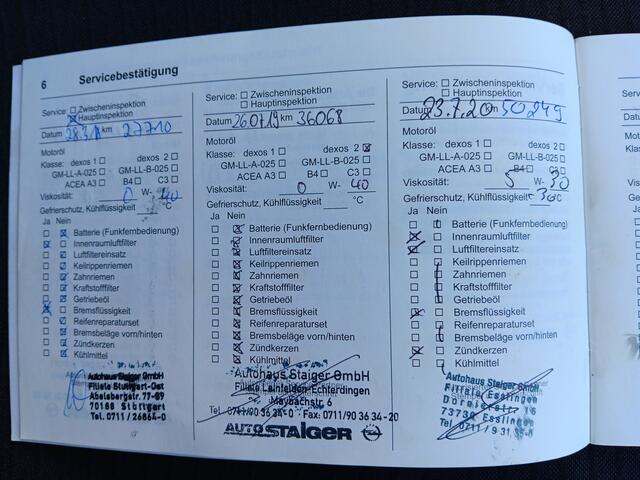 6 Servicebestätigung
Service: ☐ Zwischeninspektion
☒ Hauptinspektion
Datum 28.3. km 27710
Motoröl
Klasse: dexos 1 ☐ dexos 2 ☐
GM-LL-A-025 ☐ GM-LL-B-025 ☐
ACEA A3 ☐ B4 ☐ C3 ☐
Viskosität: 0 W- 40
Gefrierschutz, Kühlflüssigkeit °C
Ja Nein
☐ ☒ Batterie (Funkfernbedienung)
☒ ☐ Innenraumluftfilter
☐ ☒ Luftfiltereinsatz
☐ ☒ Keilrippenriemen
☐ ☒ Zahnriemen
☐ ☒ Kraftstofffilter
☐ ☒ Getriebeöl
☒ ☐ Bremsflüssigkeit
☐ ☒ Reifenreparaturset
☐ ☒ Bremsbeläge vorn/hinten
☐ ☒ Zündkerzen
☐ ☒ Kühlmittel
Autohaus Staiger GmbH
Filiale Stuttgart-Ost
Abelsbergstr. 77-89
70188 Stuttgart
Tel. 0711 / 26864-0
Service: ☐ Zwischeninspektion
☐ Hauptinspektion
Datum 26.07.19 km 36068
Motoröl
Klasse: dexos 1 ☐ dexos 2 ☒
GM-LL-A-025 ☐ GM-LL-B-025 ☐
ACEA A3 ☐ B4 ☐ C3 ☐
Viskosität: 0 W- 40
Gefrierschutz, Kühlflüssigkeit °C
Ja Nein
☐ ☒ Batterie (Funkfernbedienung)
☐ ☒ Innenraumluftfilter
☐ ☒ Luftfiltereinsatz
☐ ☒ Keilrippenriemen
☐ ☒ Zahnriemen
☐ ☒ Kraftstofffilter
☐ ☒ Getriebeöl
☐ ☒ Bremsflüssigkeit
☐ ☒ Reifenreparaturset
☐ ☒ Bremsbeläge vorn/hinten
☐ ☒ Zündkerzen
☐ ☒ Kühlmittel
Autohaus Staiger GmbH
Filiale Leinfelden-Echterdingen
Maybachstr. 6
Tel. 0711/90 36 34-0 · Fax: 0711/90 36 34-20
AUTO STAIGER
Service: ☐ Zwischeninspektion
☐ Hauptinspektion
Datum 23.7.20 km 50249
Motoröl
Klasse: dexos 1 ☐ dexos 2 ☐
GM-LL-A-025 ☐ GM-LL-B-025 ☐
ACEA A3 ☐ B4 ☐ C3 ☐
Viskosität: 5 W- 30
Gefrierschutz, Kühlflüssigkeit - 30 °C
Ja Nein
☐ ☐ Batterie (Funkfernbedienung)
☒ ☐ Innenraumluftfilter
☒ ☐ Luftfiltereinsatz
☐ ☐ Keilrippenriemen
☐ ☐ Zahnriemen
☐ ☐ Kraftstofffilter
☐ ☐ Getriebeöl
☒ ☐ Bremsflüssigkeit
☐ ☐ Reifenreparaturset
☐ ☐ Bremsbeläge vorn/hinten
☒ ☐ Zündkerzen
☐ ☐ Kühlmittel
Autohaus Staiger GmbH
Filiale Esslingen
73730 Esslingen
Tel. 0711 / 9 31